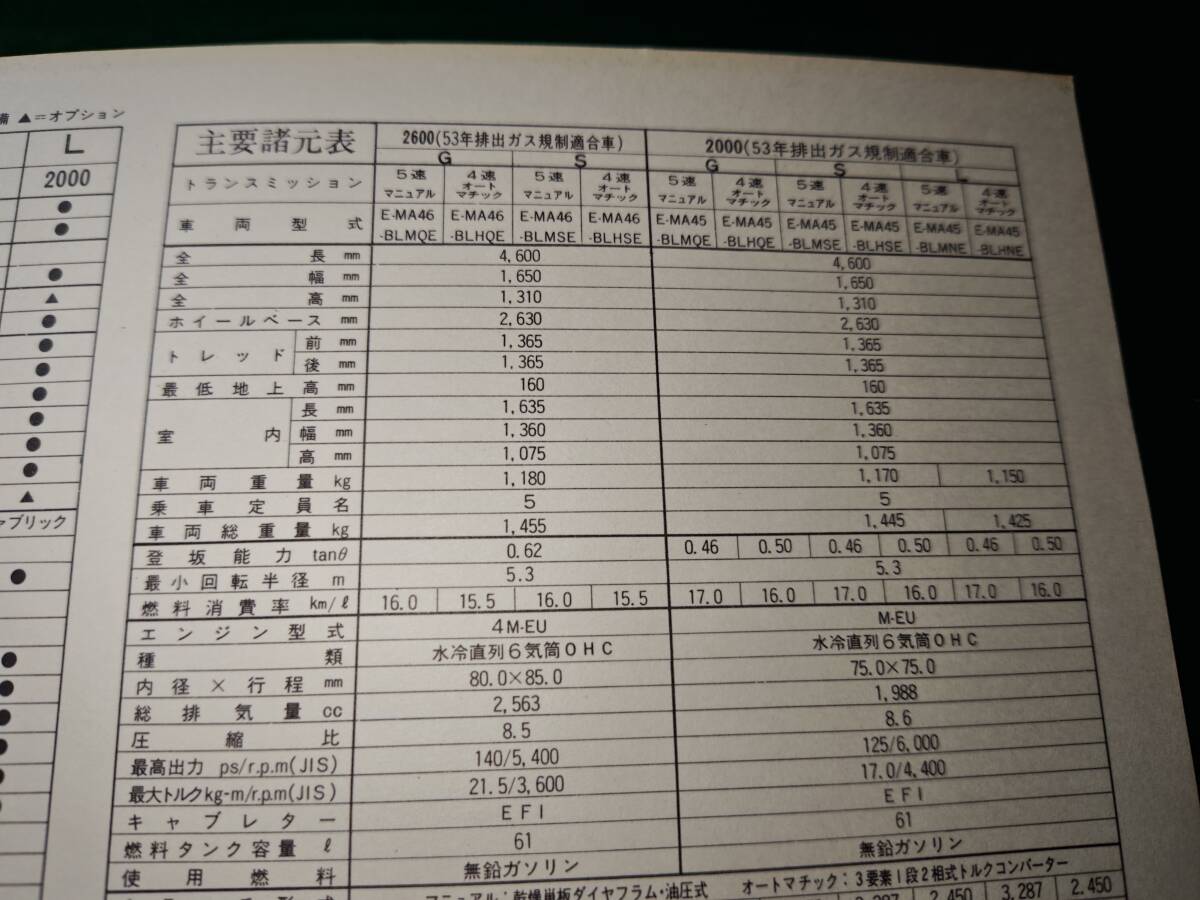 備 ▲=オプション
L
2000
●
●
●
▲
●
●
●
●
●
●
●
▲
ャブリック
●
●
●
●
●
●
主要諸元表 2600(53年排出ガス規制適合車) 2000(53年排出ガス規制適合車)
G S G S L
トランスミッション 5速マニュアル 4速オートマチック 5速マニュアル 4速オートマチック 5速マニュアル 4速オートマチック 5速マニュアル 4速オートマチック 5速マニュアル 4速オートマチック
車両型式 E-MA46 E-MA46 E-MA46 E-MA46 E-MA45 E-MA45 E-MA45 E-MA45 E-MA45 E-MA45
-BLMQE -BLHQE -BLMSE -BLHSE -BLMQE -BLHQE -BLMSE -BLHSE -BLMNE -BLHNE
全長 mm 4,600 4,600
全幅 mm 1,650 1,650
全高 mm 1,310 1,310
ホイールベース mm 2,630 2,630
トレッド 前 mm 1,365 1,365
後 mm 1,365 1,365
最低地上高 mm 160 160
室内 長 mm 1,635 1,635
幅 mm 1,360 1,360
高 mm 1,075 1,075
車両重量 kg 1,180 1,170 1,150
乗車定員 名 5 5
車両総重量 kg 1,455 1,445 1,425
登坂能力 tanθ 0.62 0.46 0.50 0.46 0.50 0.46 0.50
最小回転半径 m 5.3 5.3
燃料消費率 km/ℓ 16.0 15.5 16.0 15.5 17.0 16.0 17.0 16.0 17.0 16.0
エンジン型式 4M-EU M-EU
種類 水冷直列6気筒OHC 水冷直列6気筒OHC
内径×行程 mm 80.0×85.0 75.0×75.0
総排気量 cc 2,563 1,988
圧縮比 8.5 8.6
最高出力 ps/r.p.m(JIS) 140/5,400 125/6,000
最大トルクkg-m/r.p.m(JIS) 21.5/3,600 17.0/4,400
キャブレター EFI EFI
燃料タンク容量 ℓ 61 61
使用燃料 無鉛ガソリン 無鉛ガソリン
マニュアル:乾燥単板ダイヤフラム・油圧式 オートマチック:3要素1段2相式トルクコンバーター
2.450 3.287 2.450